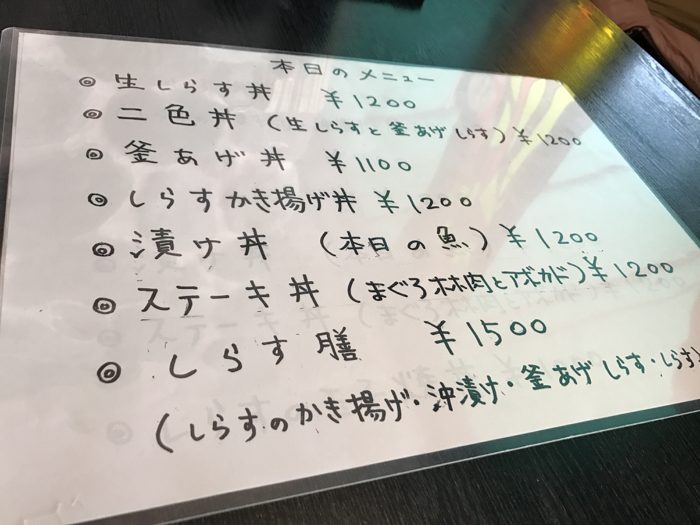 本日のメニュー
◎ 生しらす丼 ¥1200
◎ 二色丼 (生しらすと釜あげしらす) ¥1200
◎ 釜あげ丼 ¥1100
◎ しらすかき揚げ丼 ¥1200
◎ 漬け丼 (本日の魚) ¥1200
◎ ステーキ丼 (まぐろホホ肉とアボカド) ¥1200
◎ しらす膳 ¥1500
(しらすのかき揚げ・沖漬け・釜あげしらす・しらす